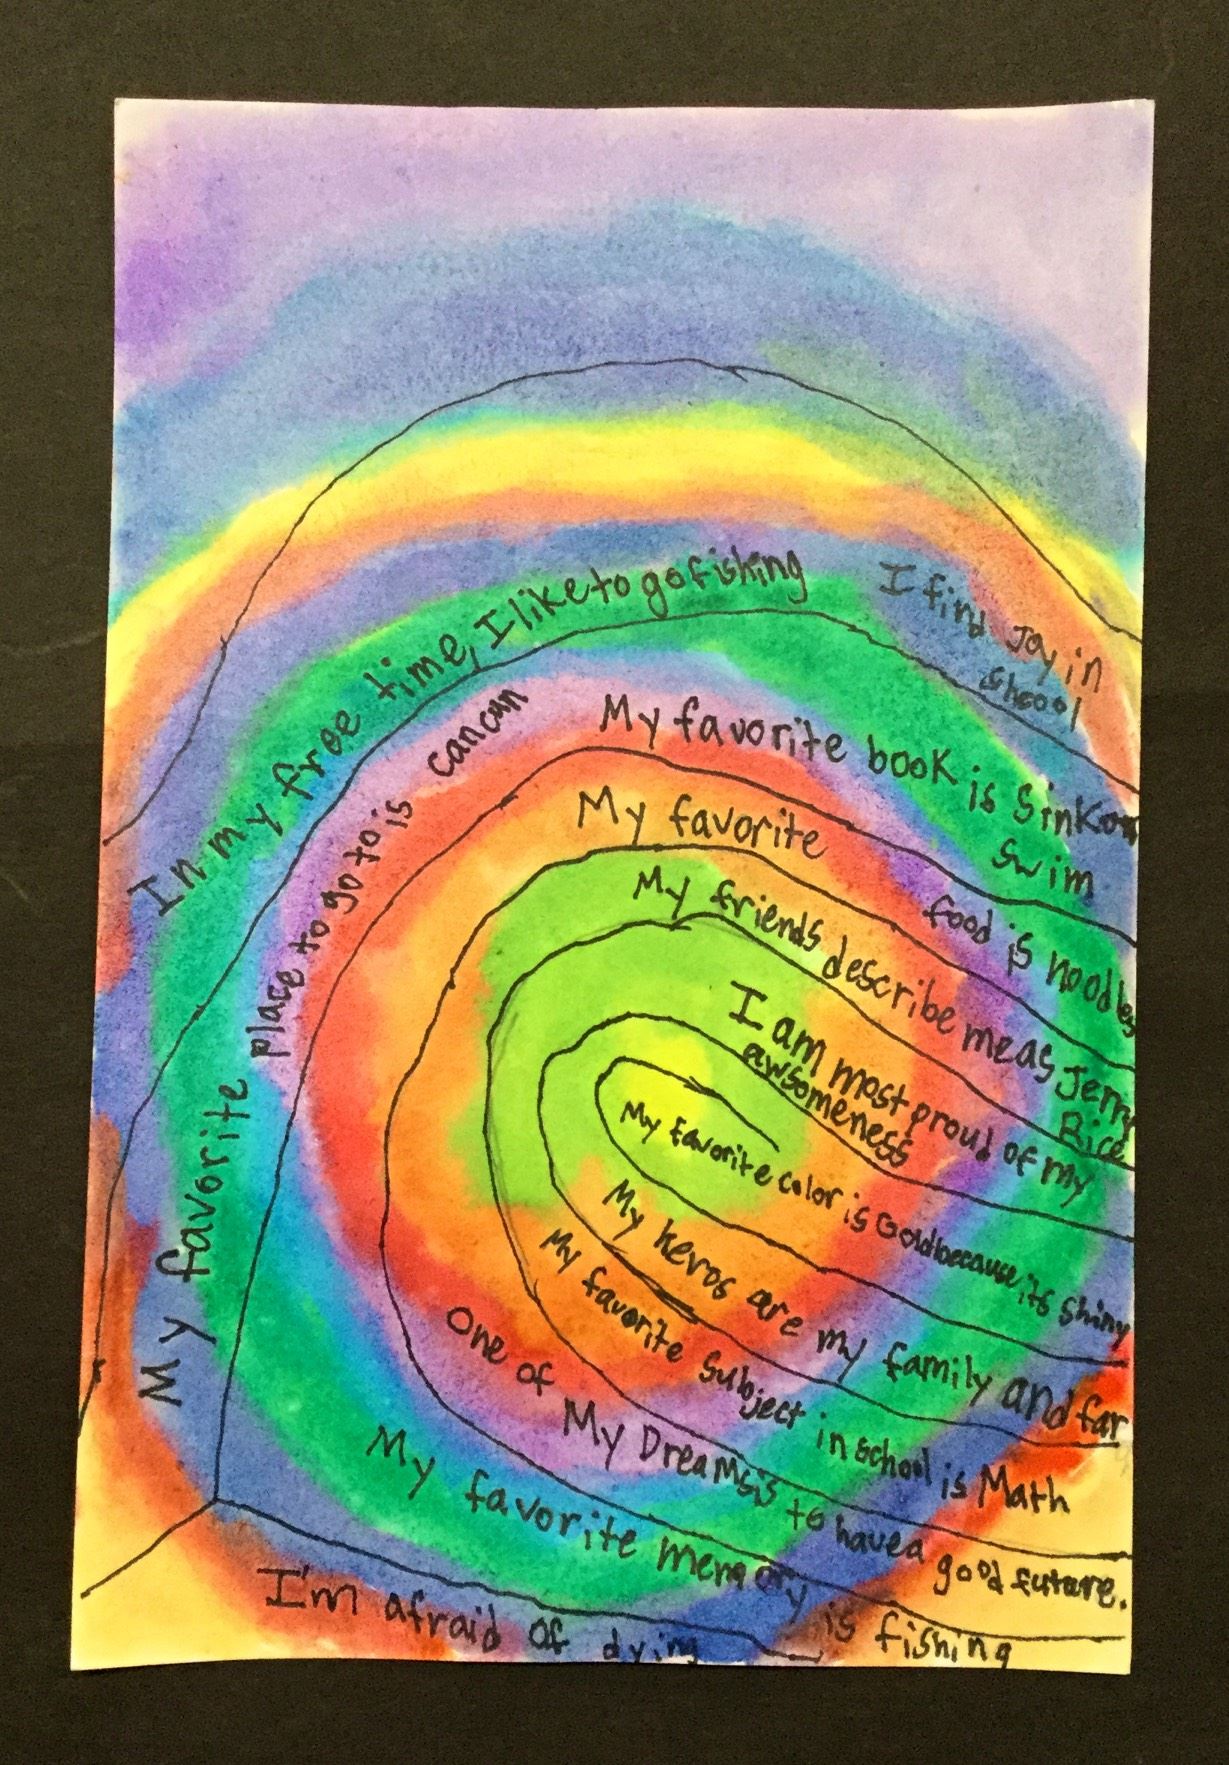 I find Joy in
shcool
In my free time, I like to go fishing
My favorite place to go to is cancun
My favorite book is Sink or
Swim
My favorite food is noodles
My friends describe me as Jerry
Rice
I am most proud of my
awsomeness
My favorite color is Gold because its shiny
My heros are my family and far
My favorite subject in school is Math
One of My Dreams is to have a good future.
My favorite memory is fishing
I'm afraid of dying